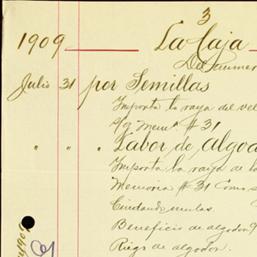 3
1909
La Caja
Julio 31 por Semillas
Importa la raya del
s/g Mem.ª # 31
" " Labor de algod
Importa la raya de la
Memoria # 31 Como s
Cuidando mulas
Beneficio de algodon
Riego de algodon.
1909